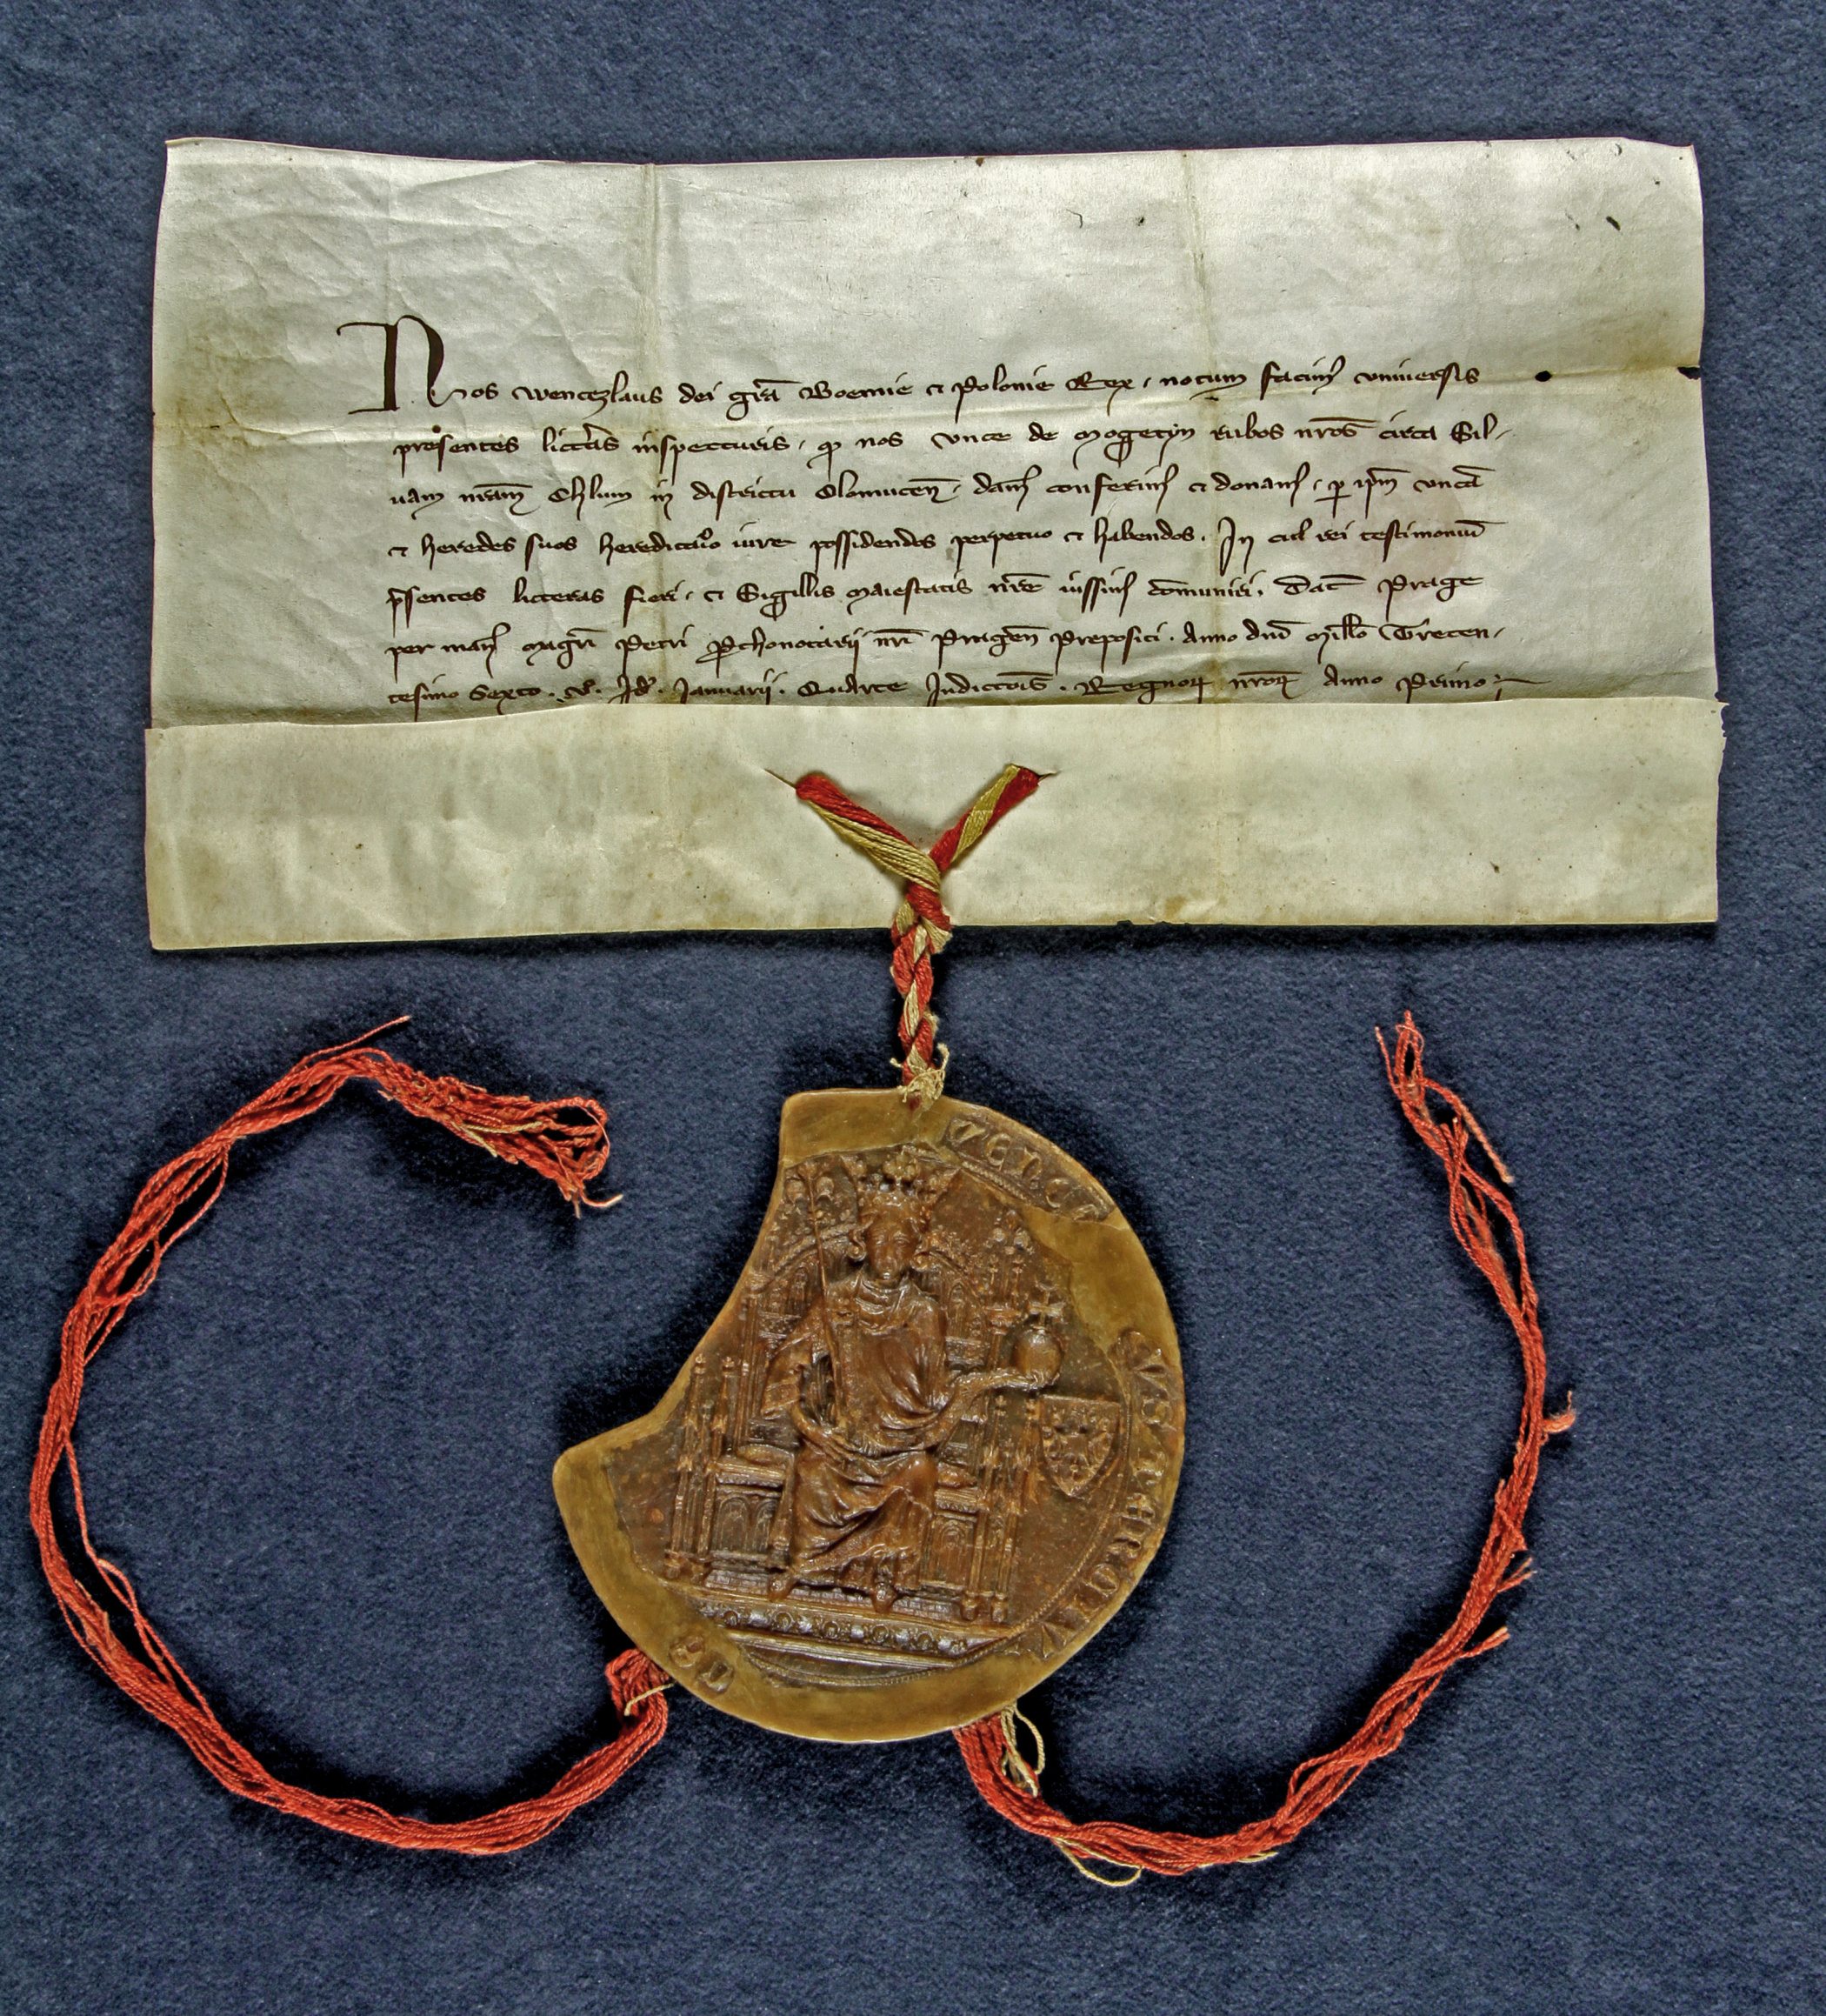 Nos Wenczlaus dei grā Boemie et Polonie Rex. notum facimꝰ vniuersis
presentes litteras inspecturis. ꝙ nos Vnce de Mogetyn rubos nr̄os circa Sil-
uam nr̄am Chlum in districtu Olomucen̄. damꝰ conferimꝰ et donamꝰ. ꝑ ip̄m Vncā
et heredes suos hereditario iure possidendos perpetuo et habendos. In cuiꝰ rei testimoniū
p̄sentes litteras fieri. et Sigillis Maiestatis nr̄e iussimꝰ com̄uniri. Dat̄ Prage
per manꝰ magr̄i Petri Ꝓthonotarij nr̄i Pragen̄ Prepositi. Anno dn̄i Mill̄o Trecen-
tesimo Sexto. Jdꝰ. Januarij. Quarte Jndictōis. Regnoꝝ nr̄oꝝ Anno Primo